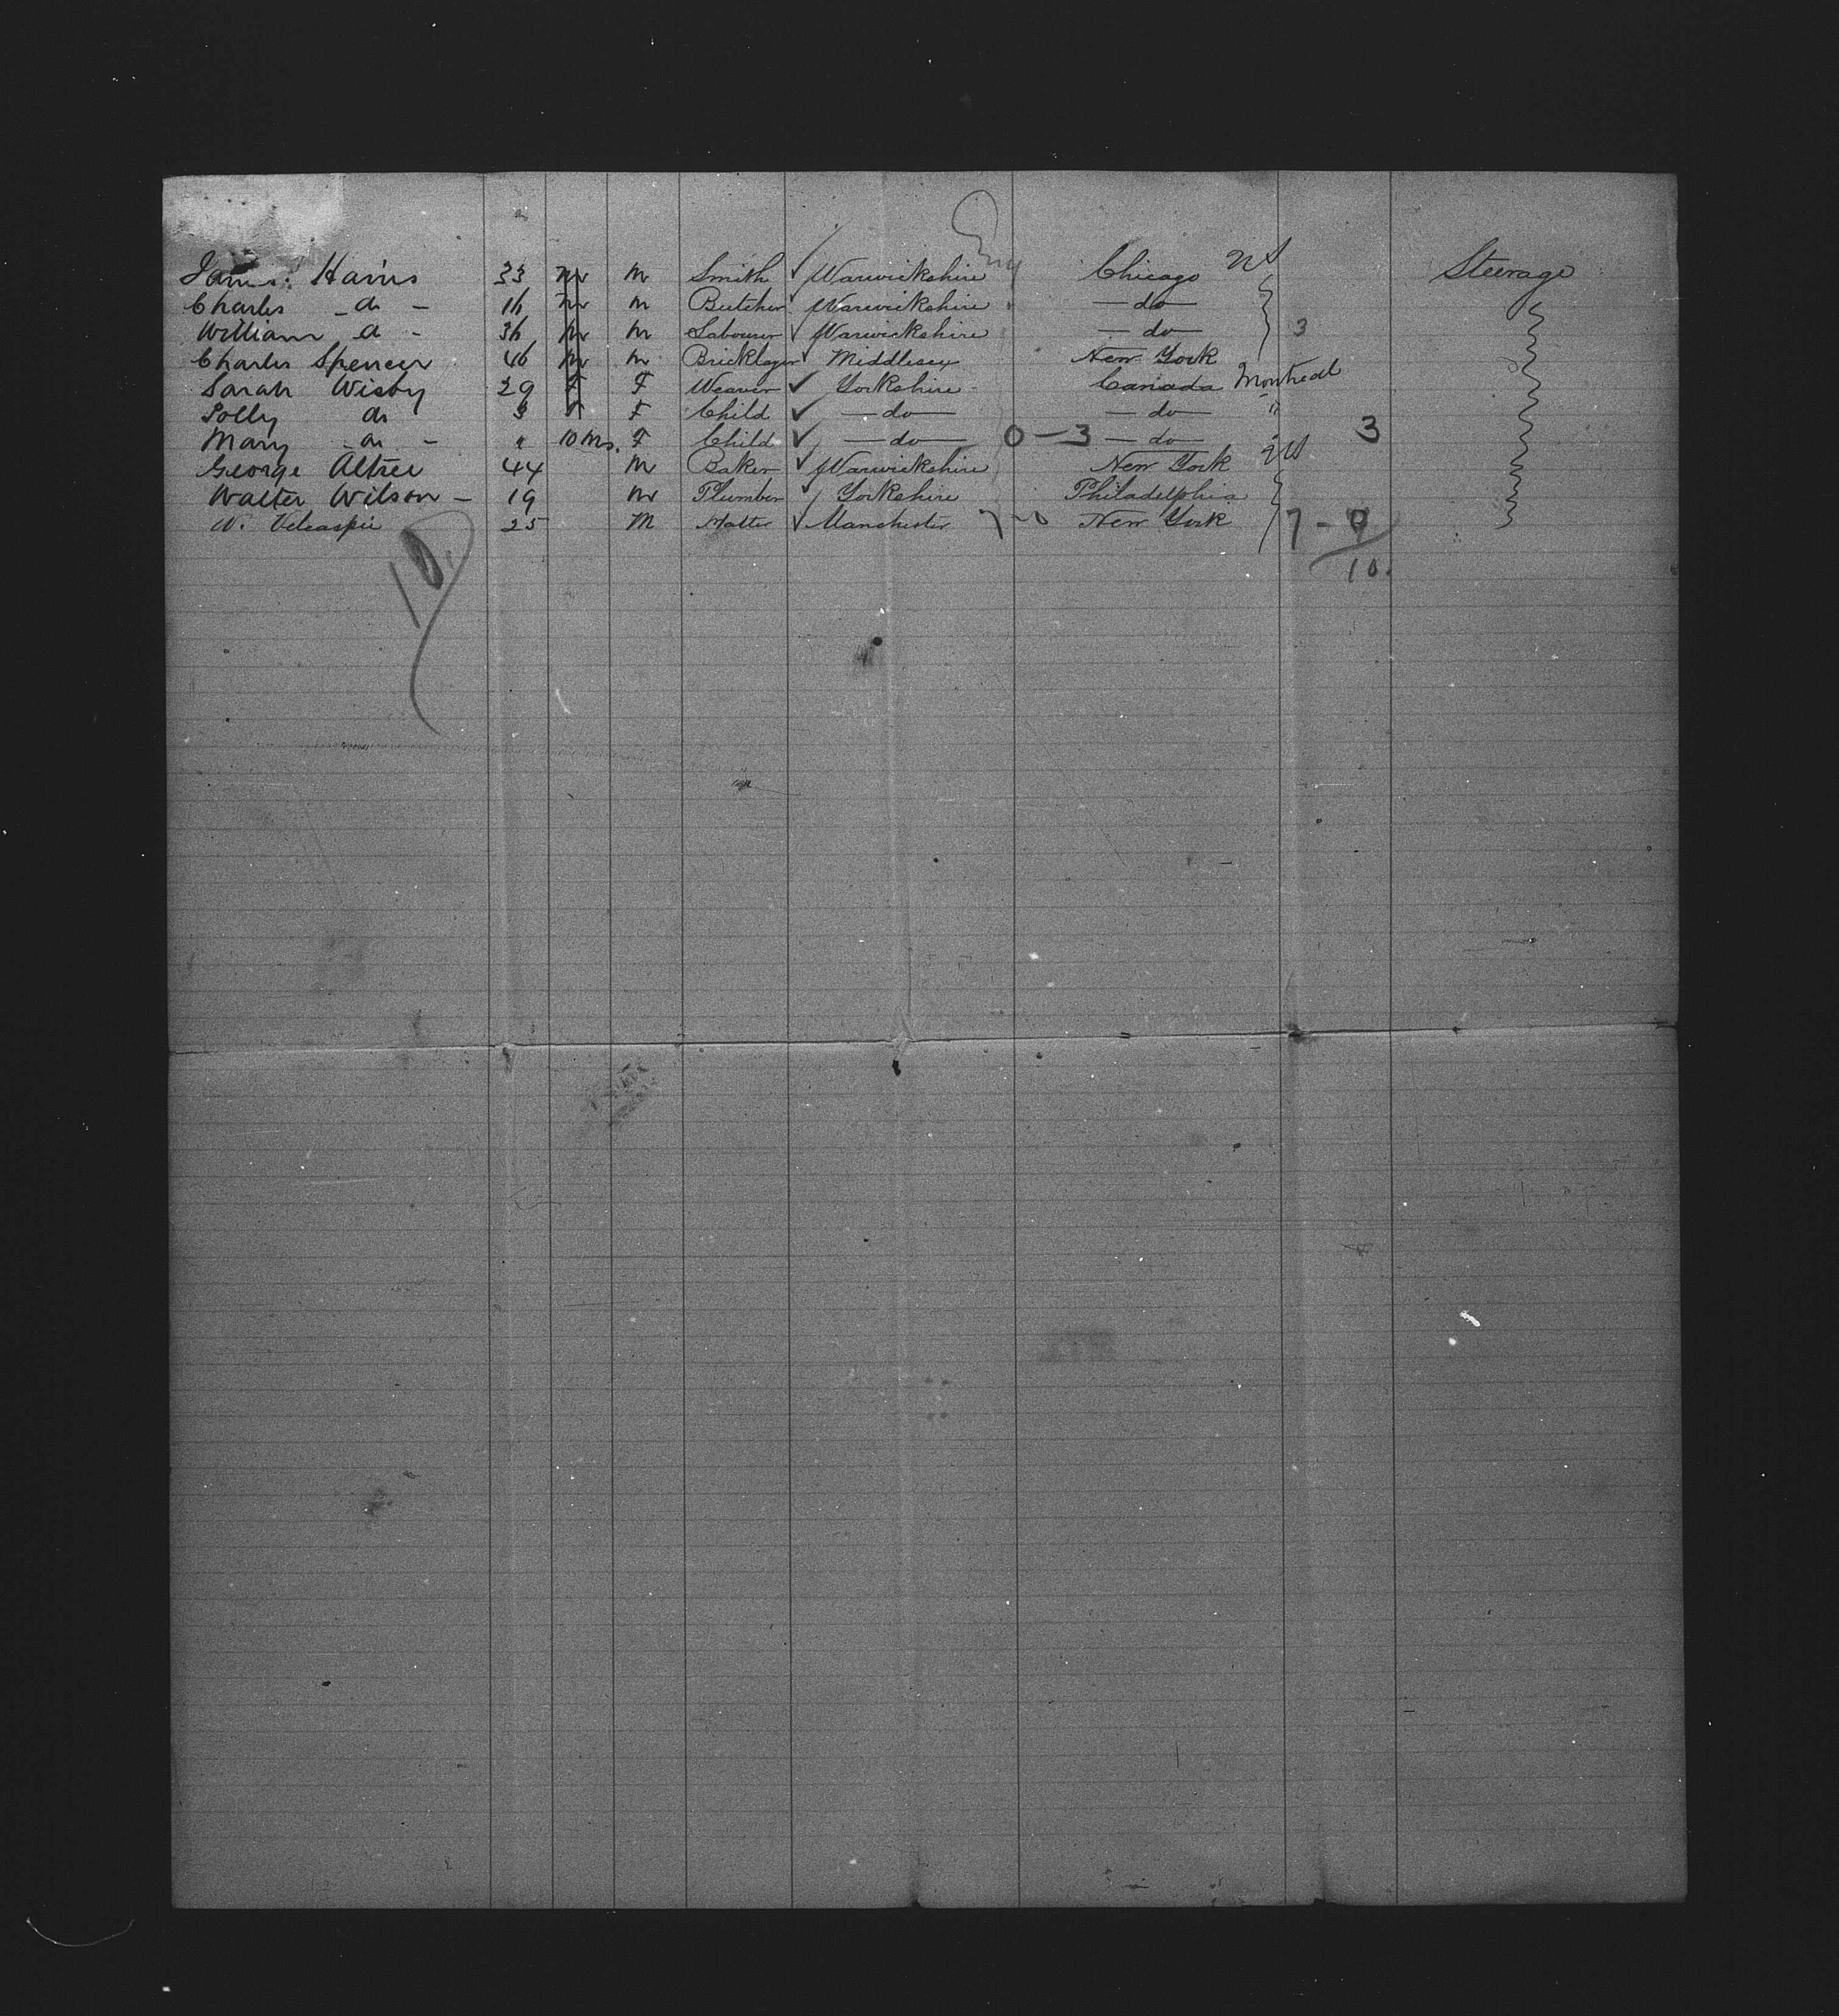 Eng
James Harris 33 m m Smith ✓ Warwickshire Chicago US Steerage
Charles - do - 16 m m Butcher Warwickshire - do -
William do - 36 m m Labourer ✓ Warwickshire - do - 3
Charles Spencer 46 m m Bricklayer ✓ Middlesex New York
Sarah Wisby 29 F F Weaver ✓ Yorkshire Canada Montreal
Polly do 3 F F Child ✓ - do - - do - "
Mary - do - " 10 Ms. F Child ✓ - do - 0-3 - do - " 3
George Altree 44 M Baker ✓ Warwickshire New York US
Walter Wilson - 19 m Plumber ✓ Yorkshire Philadelphia
W. 25 M Hatter ✓ Manchester 7-0 New York 7-0
10.
10.